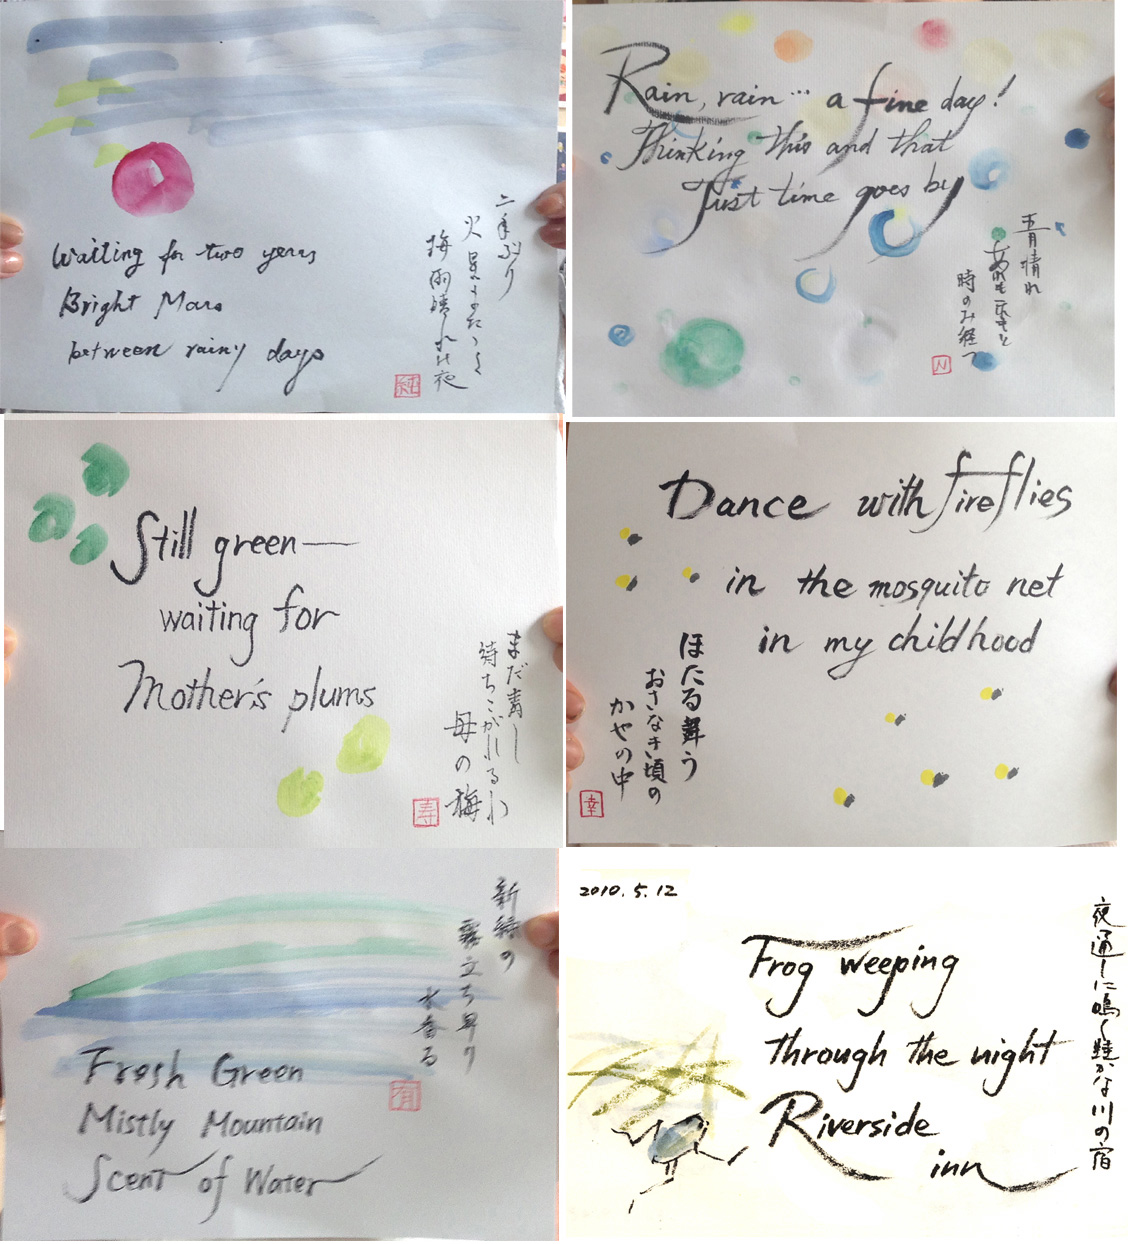 Waiting for two years
Bright Mars
between rainy days
二年ぶり
火星またたく
梅雨晴れの夜
純
Rain, rain… a fine day!
Thinking this and that
Just time goes by
五月晴れ
あれもこれもと
時のみ経つ
N
Still green—
waiting for
Mother's plums
まだ青し
待ちこがれるわ
母の梅
寿
Dance with fireflies
in the mosquito net
in my childhood
ほたる舞う
おさなき頃の
かやの中
幸
新緑の
霧立ち昇り
水香る
有
Fresh Green
Mistly Mountain
Scent of Water
2010.5.12
Frog weeping
through the night
Riverside
inn
夜通しに鳴く蛙かな川の宿